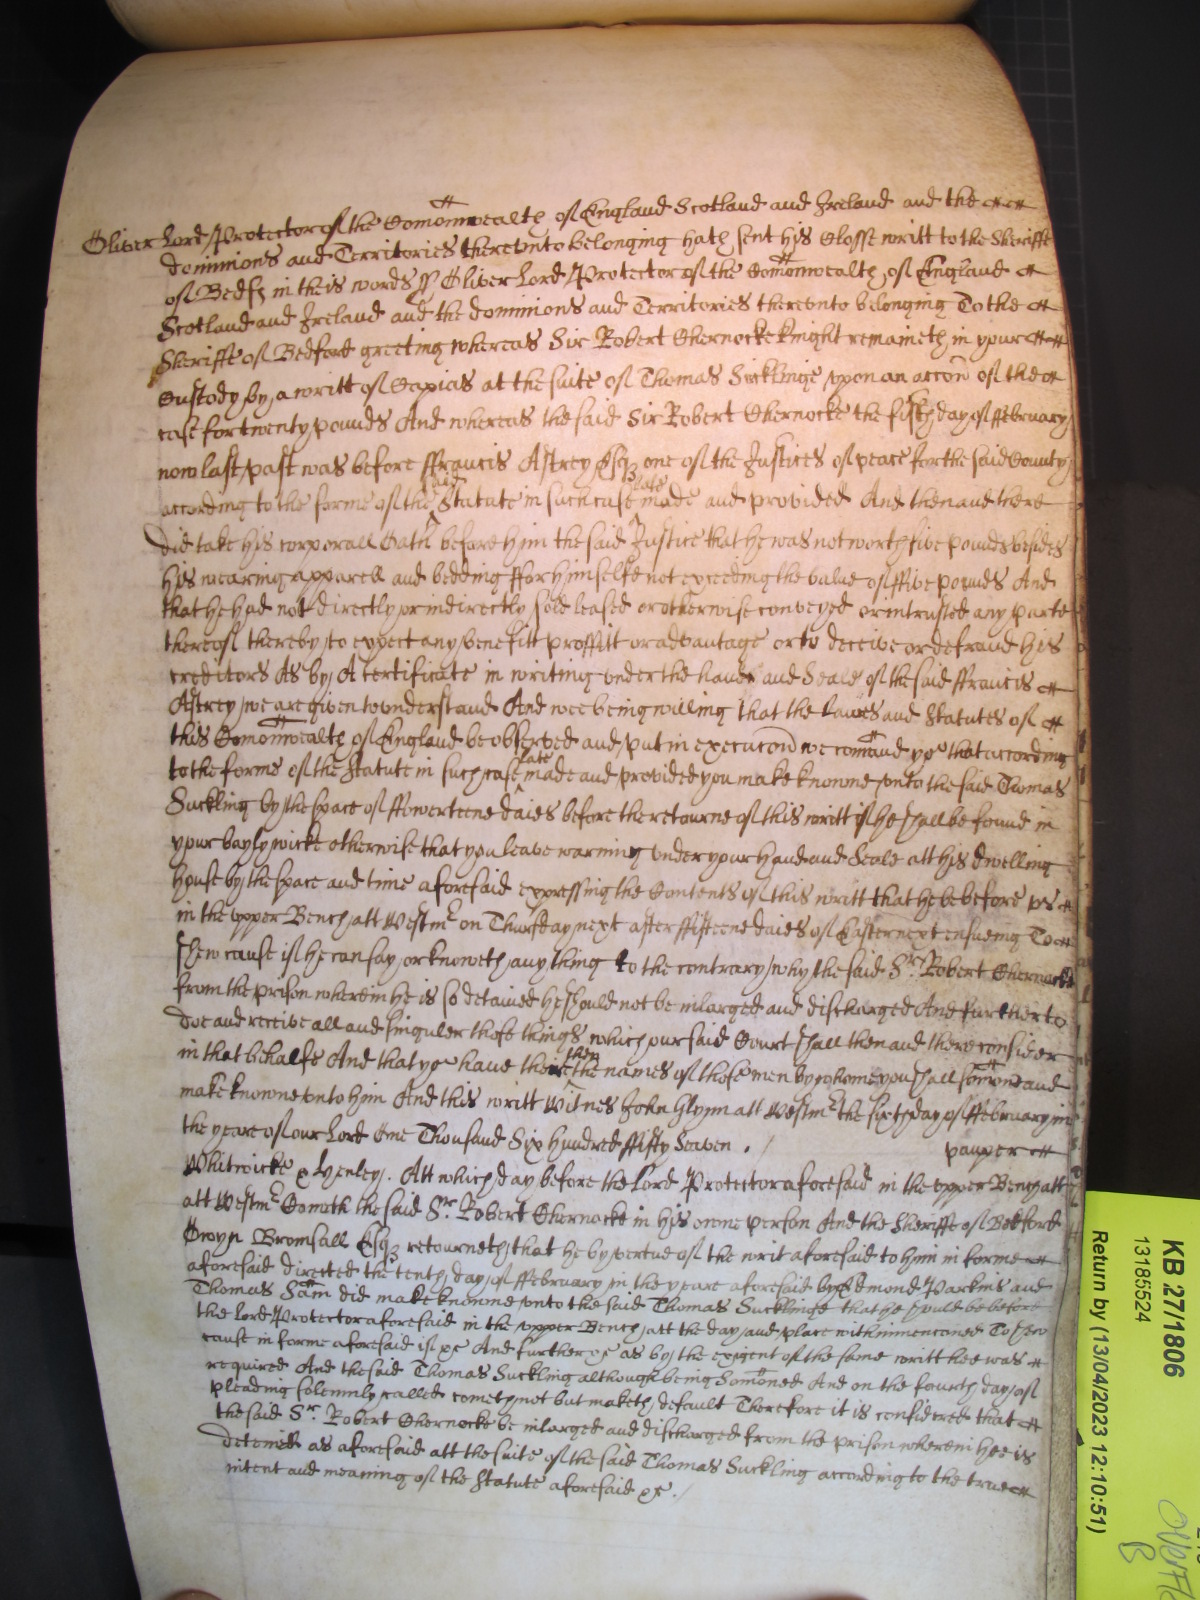 Oliver Lord Protector of the Comonwealth of England Scotland and Ireland and the
dominions and Territories therevnto belonging hath sent his Closse writt to the Sheriffe
of Bedf in theis words ss Oliver Lord Protector of the Comonwealth of England
Scotland and Ireland and the dominions and Territories therevnto belonging To the
Sheriffe of Bedford greeting whereas Sir Robert Chernocke knight remaineth in your
Custody by a writt of Capias at the suite of Thomas Sucklinge vpon an accon of the
case for twenty pounds And whereas the said Sir Robert Chernocke the fifth day of ffebruary
now last past was before ffrancis Astrey Esqz one of the Justices of peace for the said County
according to the forme of the said Statute in such case late made and provided And then and there
did take his corporall Oath before him the said Justice that he was not worth five pounds besides
his wearing apparell and bedding ffor himselfe not exceeding the value of ffive pounds And
that he had not directly or indirectly sold leased or otherwise conveyed or intrusted any parte
thereof thereby to expect any benefitt proffitt or advantage or to deceive or defraud his
creditors As by A certificate in writing vnder the hand and Seale of the said ffrancis
Astrey we are given to vnderstand And wee being willing that the lawes and Statutes of
this Comonwealth of England be observed and put in execucon we comaund yo that according
to the forme of the Statute in such case late made and provided you make knowne vnto the said Thomas
Suckling by the space of ffowerteene daies before the retourne of this writt if he shall be found in
your baylywicke otherwise that you leave warning vnder your hand and Seale att his dwelling
house by the space and time aforesaid expressing the Contents of this writt that he be before vs
in the vpper Bench att Westmr on Thursday next after ffifteene daies of Easter next ensueing To
shew cause if he can say or knoweth any thing to the contrary why the said Sr. Robert Chernocke
from the prison wherein he is so detained he should not be inlarged and discharged And further to
doe and receive all and singuler those things which our said Court shall then and there consider
in that behalfe And that yo have then the names of those men by whome you shall somone and
make knowne vnto him And this writt Witnes John Glynn att Westmr the sixth day of ffebruary in
the yeare of our Lord One Thousand Six hundred ffifty Seaven .
pauper
Whitwicke & Henley. Att which day before the Lord Protector aforesaid in the vpper Bench att
att Westmr Cometh the said Sr. Robert Chernocke in his owne person And the Sheriffe of Bedford
Owyn Bromsall Esqz retourneth that he by vertue of the writ aforesaid to him in forme
aforesaid directed the tenth day of ffebruary in the yeare aforesaid by Edmond Parkins and
Thomas Sam did make knowne vnto the said Thomas Sucklinge that he should be before
the Lord Protector aforesaid in the vpper Bench att the day and place within mencioned To shew
cause in forme aforesaid if &c And further &c as by the exigent of the same writt hee was
required And the said Thomas Suckling although being Somoned And on the fourth day of
pleading solemnly called cometh not but maketh default Therefore it is considered that
the said Sr. Robert Chernocke be inlarged and discharged from the prison wherein hee is
deteined as aforesaid att the suite of the said Thomas Suckling according to the true
intent and meaning of the Statute aforesaid &c.
KB 271/806
13185524
Return by (13/04/2023 12:10:51)